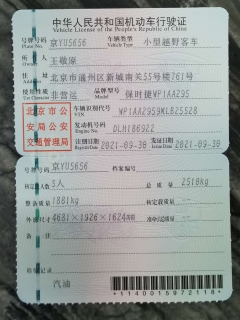 中华人民共和国机动车行驶证
Vehicle License of the People's Republic of China
号牌号码 京YU5656 车辆类型 小型越野客车
Plate No. Vehicle Type
所有人 王敬原
住址 北京市通州区新城南关55号楼761号
使用性质 非营运 品牌型号 保时捷WP1AA295
Use Character Model
北京市公安局公安交通管理局
车辆识别代号 WP1AA2959MLB25528
VIN
发动机号码 DLH186922
Engine No.
注册日期 2021-09-30 发证日期 2021-09-30
Register Date Issue Date
号牌号码 京YU5656 档案编号
核定载人数 5人 总质量 2510kg
整备质量 1881kg 核定载质量
外廓尺寸 4681×1926×1624mm 准牵引总质量
备注
检验记录
汽油
*1140015972118*